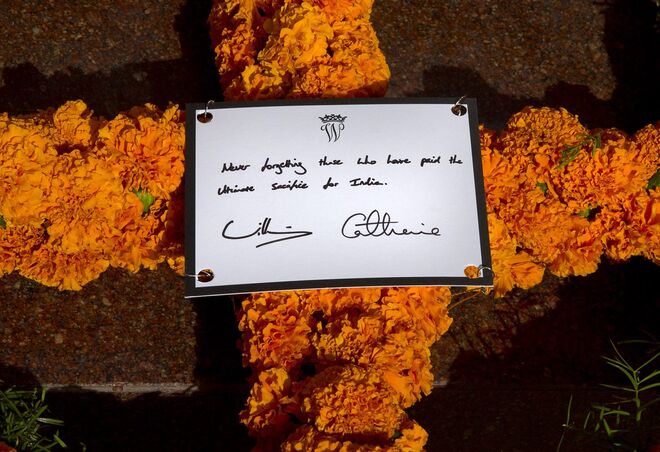 W
Never forgetting those who have paid the
Ultimate Sacrifice for India.
William Catherine